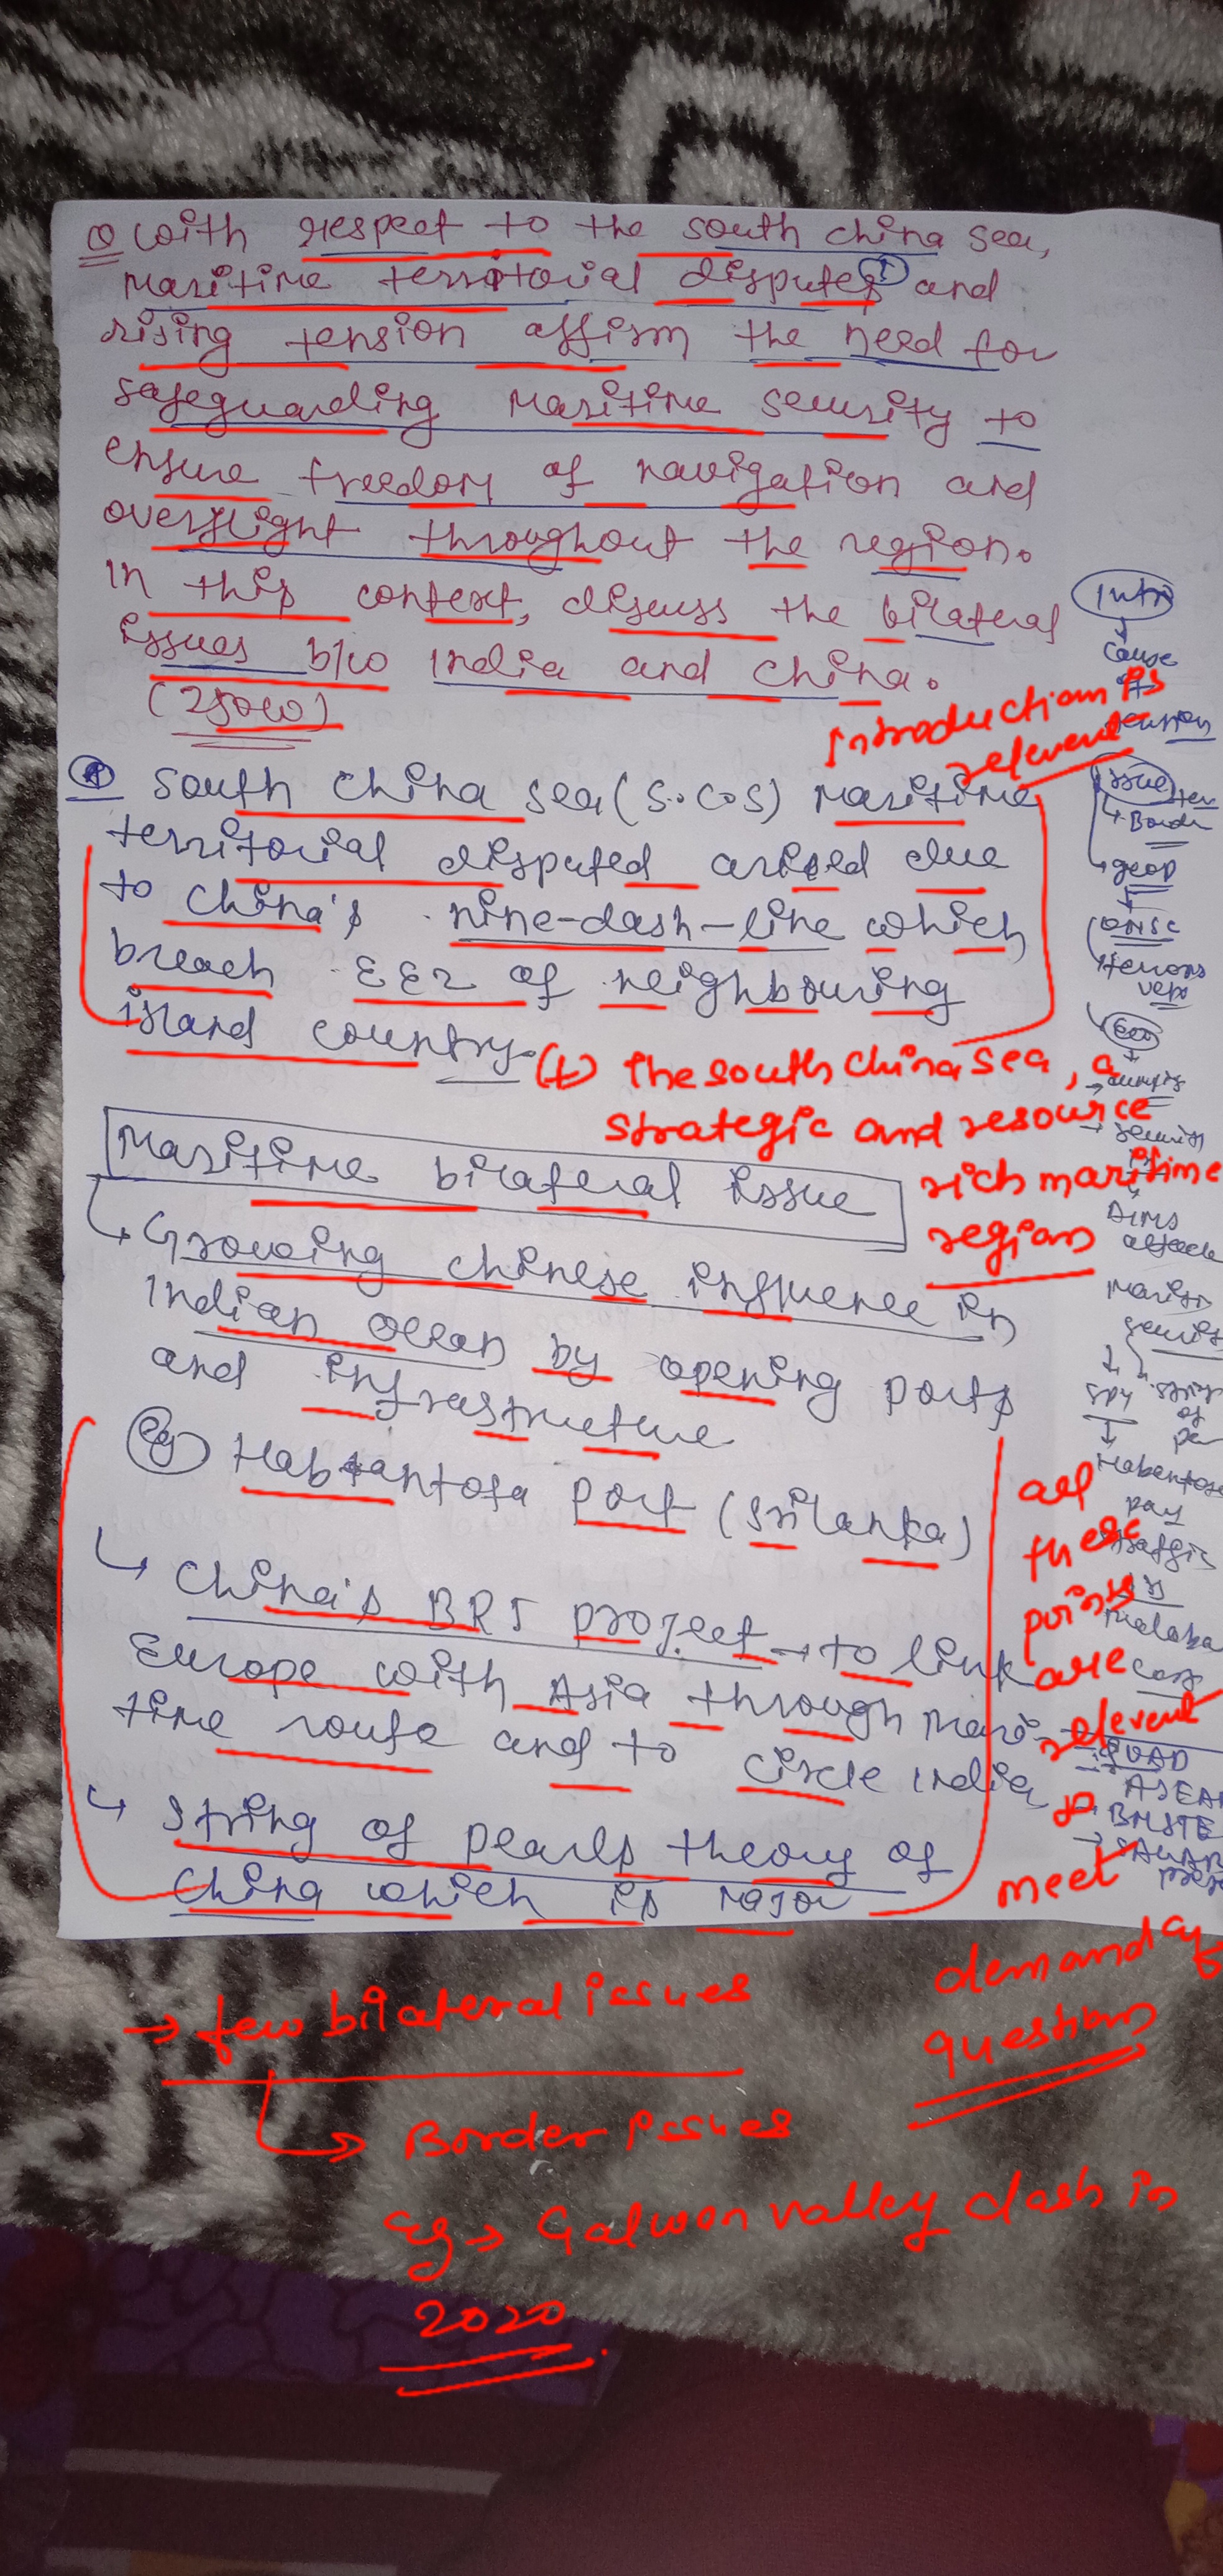 Q with respect to the south china sea,
maritime territorial disputes and
rising tension affirm the need for
safeguarding maritime security to
ensure freedom of navigation and
overflight throughout the region.
In this context, discuss the bilateral
issues b/w India and China.
(250w)
Intro
↓
cause
tension
Introduction is
relevent
A South China sea (S.C.S) maritime
territorial disputed arised due
to China's nine-dash-line which
breach EEZ of neighbouring
island country.
Issue
↳ Border
→ geop
↓
UNSC
veto
Eco
→ security
(+) The south China sea, a
strategic and resource
rich maritime
region
Maritime bilateral issue
↳ Growing chinese influence in
Indian ocean by opening ports
and infrastructure
eg Habtantota port (Srilanka)
↳ China's BRI project → to link
Europe with Asia through mari-
time route and to circle India
↳ String of pearls theory of
China which is major
AIIMS
attack
string
of
↓
all
these
points
are
relevent
&
meet
demand of
question
QUAD
ASEAN
→ few bilateral issues
↳ Border issues
eg → Galwan valley clash in
2020.